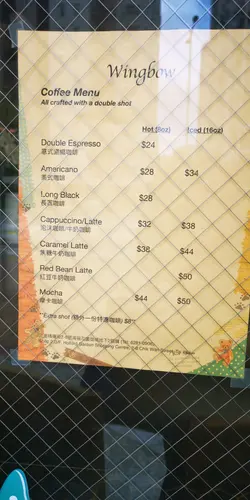 Wingbow
Coffee Menu
All crafted with a double shot
Hot (8oz) Iced (16oz)
Double Espresso $24
意式濃縮咖啡
Americano $28 $34
美式咖啡
Long Black $28
長黑咖啡
Cappuccino/Latte $32 $38
泡沫咖啡/牛奶咖啡
Caramel Latte $38 $44
焦糖牛奶咖啡
Red Bean Latte $50
紅豆牛奶咖啡
Mocha $44 $50
摩卡咖啡
*Extra shot (額外一份特濃咖啡) $8*
Garden Shopping Centre, 2-8 Chik Wan Street